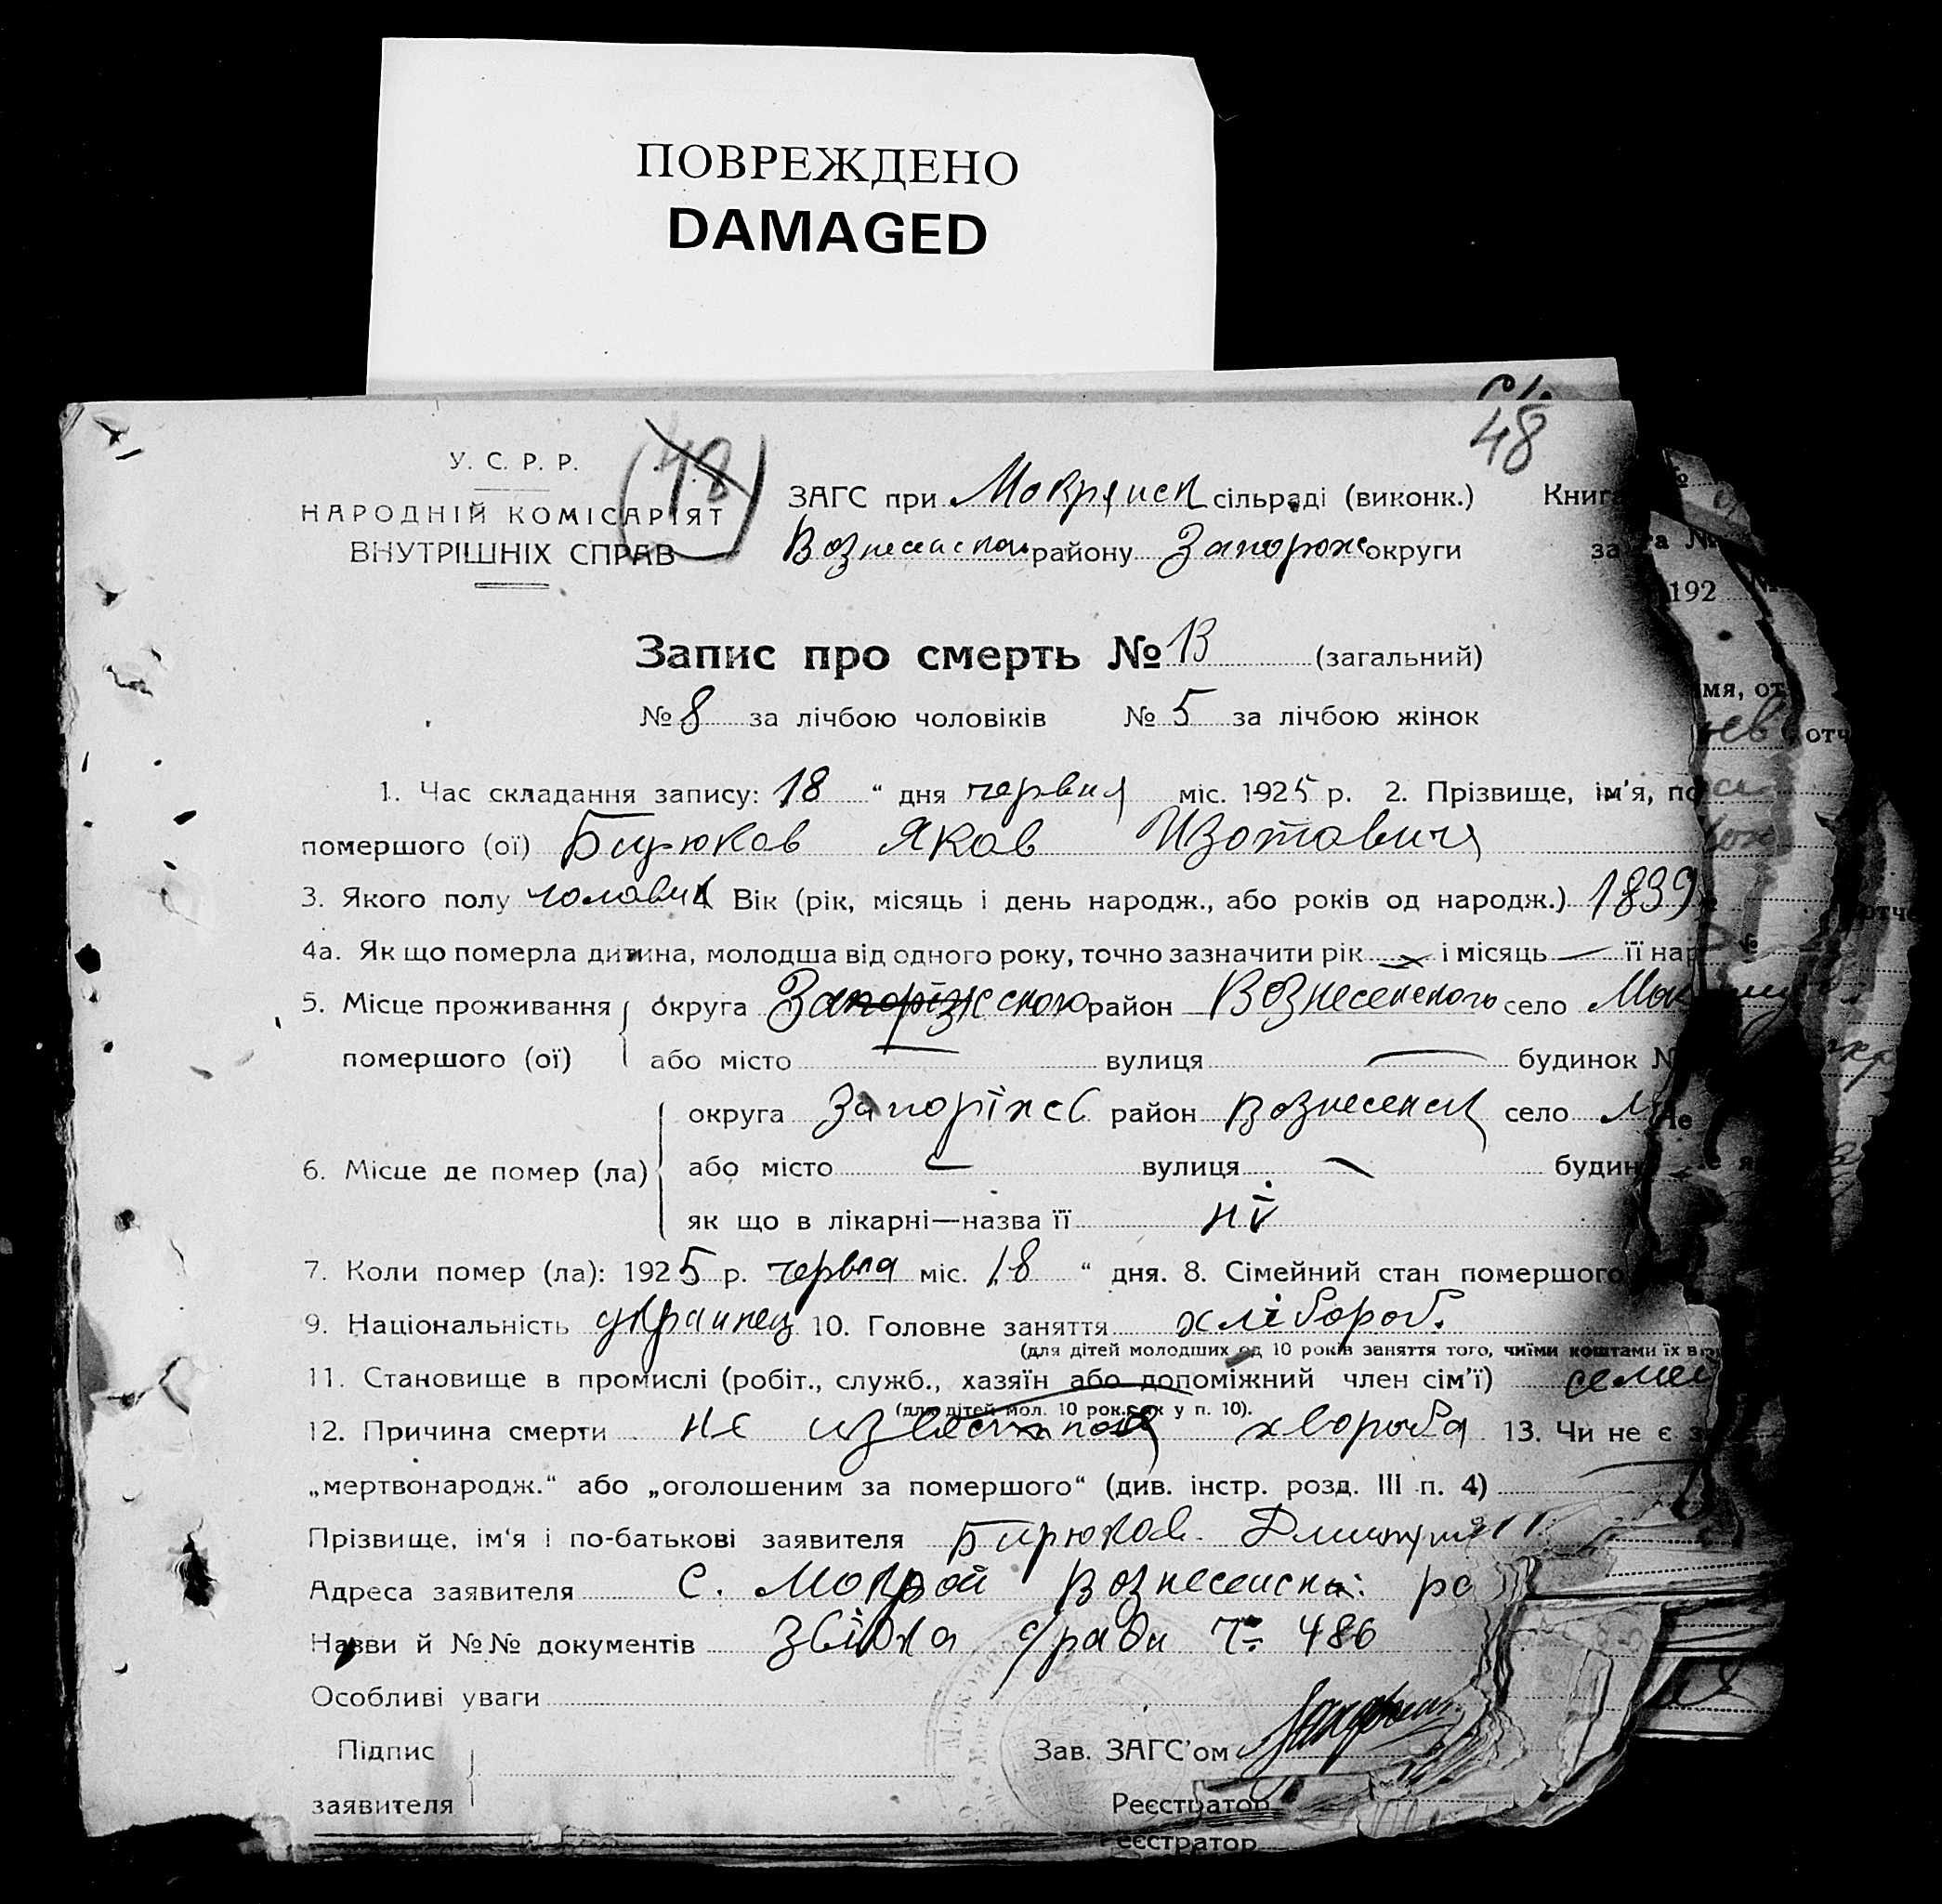 ПОВРЕЖДЕНО
DAMAGED
48
У. С. Р. Р.
(48)
НАРОДНІЙ КОМІСАРІЯТ
ВНУТРІШНІХ СПРАВ
ЗАГС при Мокрянск сільраді (виконк.) Книга
Вознесенськ району Запорож округи
192
Запис про смерть № 13 (загальний)
№ 8 за лічбою чоловіків № 5 за лічбою жінок
1. Час складання запису: 18 “ дня червня міс. 1925 р. 2. Прізвище, ім'я, по
помершого (ої) Бирюков Яков Изотович
3. Якого полу чоловик Вік (рік, місяць і день народж., або років од народж.) 1839
4а. Як що померла дитина, молодша від одного року, точно зазначити рік і місяць — її нар
5. Місце проживання округа Запоріжского район Вознесенского село Мок
помершого (ої) або місто — вулиця — будинок №
округа Запоріжс район Вознесенск село
6. Місце де помер (ла) або місто — вулиця — будин
як що в лікарні—назва її ні
7. Коли помер (ла): 1925 р. червня міс. 18 “ дня. 8. Сімейний стан помершого
9. Національність украинец 10. Головне заняття хлібороб.
(для дітей молодших од 10 років заняття того, чиїми коштами їх в
11. Становище в промислі (робіт., служб., хазяїн або допоміжний член сім'ї) семей
(для дітей мол. 10 рок. як у п. 10).
12. Причина смерти не известная хвороба 13. Чи не є з
„мертвонародж.“ або „оголошеним за помершого“ (див. інстр. розд. III п. 4)
Прізвище, ім'я і по-батькові заявителя Бирюков Дмитри
Адреса заявителя С. Мокрой Вознесенск: ра
Назви й №№ документів с/ради 486
Особливі уваги
Підпис
заявителя
Зав. ЗАГС'ом
Реєстратор
Реєстратор